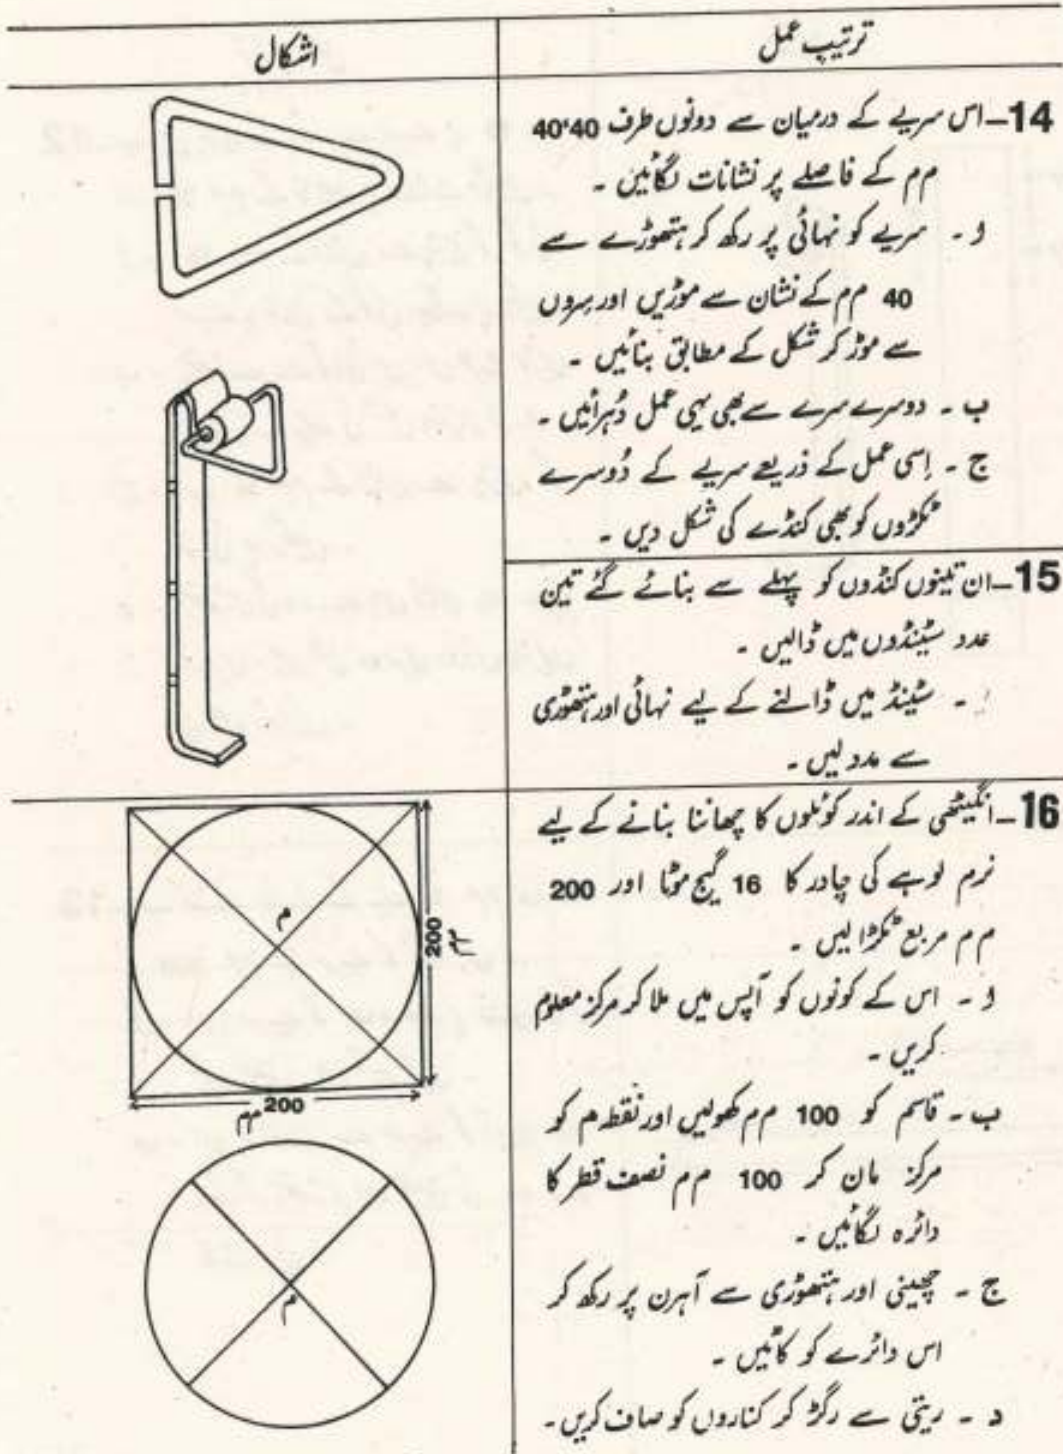 ترتیبِ عمل
اشکال
14–اس سریے کے درمیان سے دونوں طرف 40'40
م م کے فاصلے پر نشانات لگائیں ۔
ا ۔ سریے کو نہائی پر رکھ کر ہتھوڑے سے
40 م م کے نشان سے موڑیں اور سِروں
سے موڑ کر شکل کے مطابق بنائیں ۔
ب ۔ دوسرے سرے سے بھی یہی عمل دُہرائیں ۔
ج ۔ اِسی عمل کے ذریعے سریے کے دُوسرے
ٹکڑوں کو بھی کنڈے کی شکل دیں ۔
15–ان تینوں کنڈوں کو پہلے سے بنائے گئے تین
عدد سٹینڈوں میں ڈالیں ۔
ا ۔ سٹینڈ میں ڈالنے کے لیے نہائی اور ہتھوڑی
سے مدد لیں ۔
16–انگیٹھی کے اندر کوئلوں کا چھاننا بنانے کے لیے
نرم لوہے کی چادر کا 16 گیج موٹا اور 200
م م مربع ٹکڑا لیں ۔
ا ۔ اس کے کونوں کو آپس میں ملا کر مرکز معلوم
کریں ۔
ب ۔ قاسم کو 100 م م کھولیں اور نقطہ م کو
مرکز مان کر 100 م م نصف قطر کا
دائرہ لگائیں ۔
ج ۔ چھینی اور ہتھوڑی سے آہرن پر رکھ کر
اس دائرے کو کاٹیں ۔
د ۔ ریتی سے رگڑ کر کناروں کو صاف کریں ۔
م
200 م م
200 م م
م